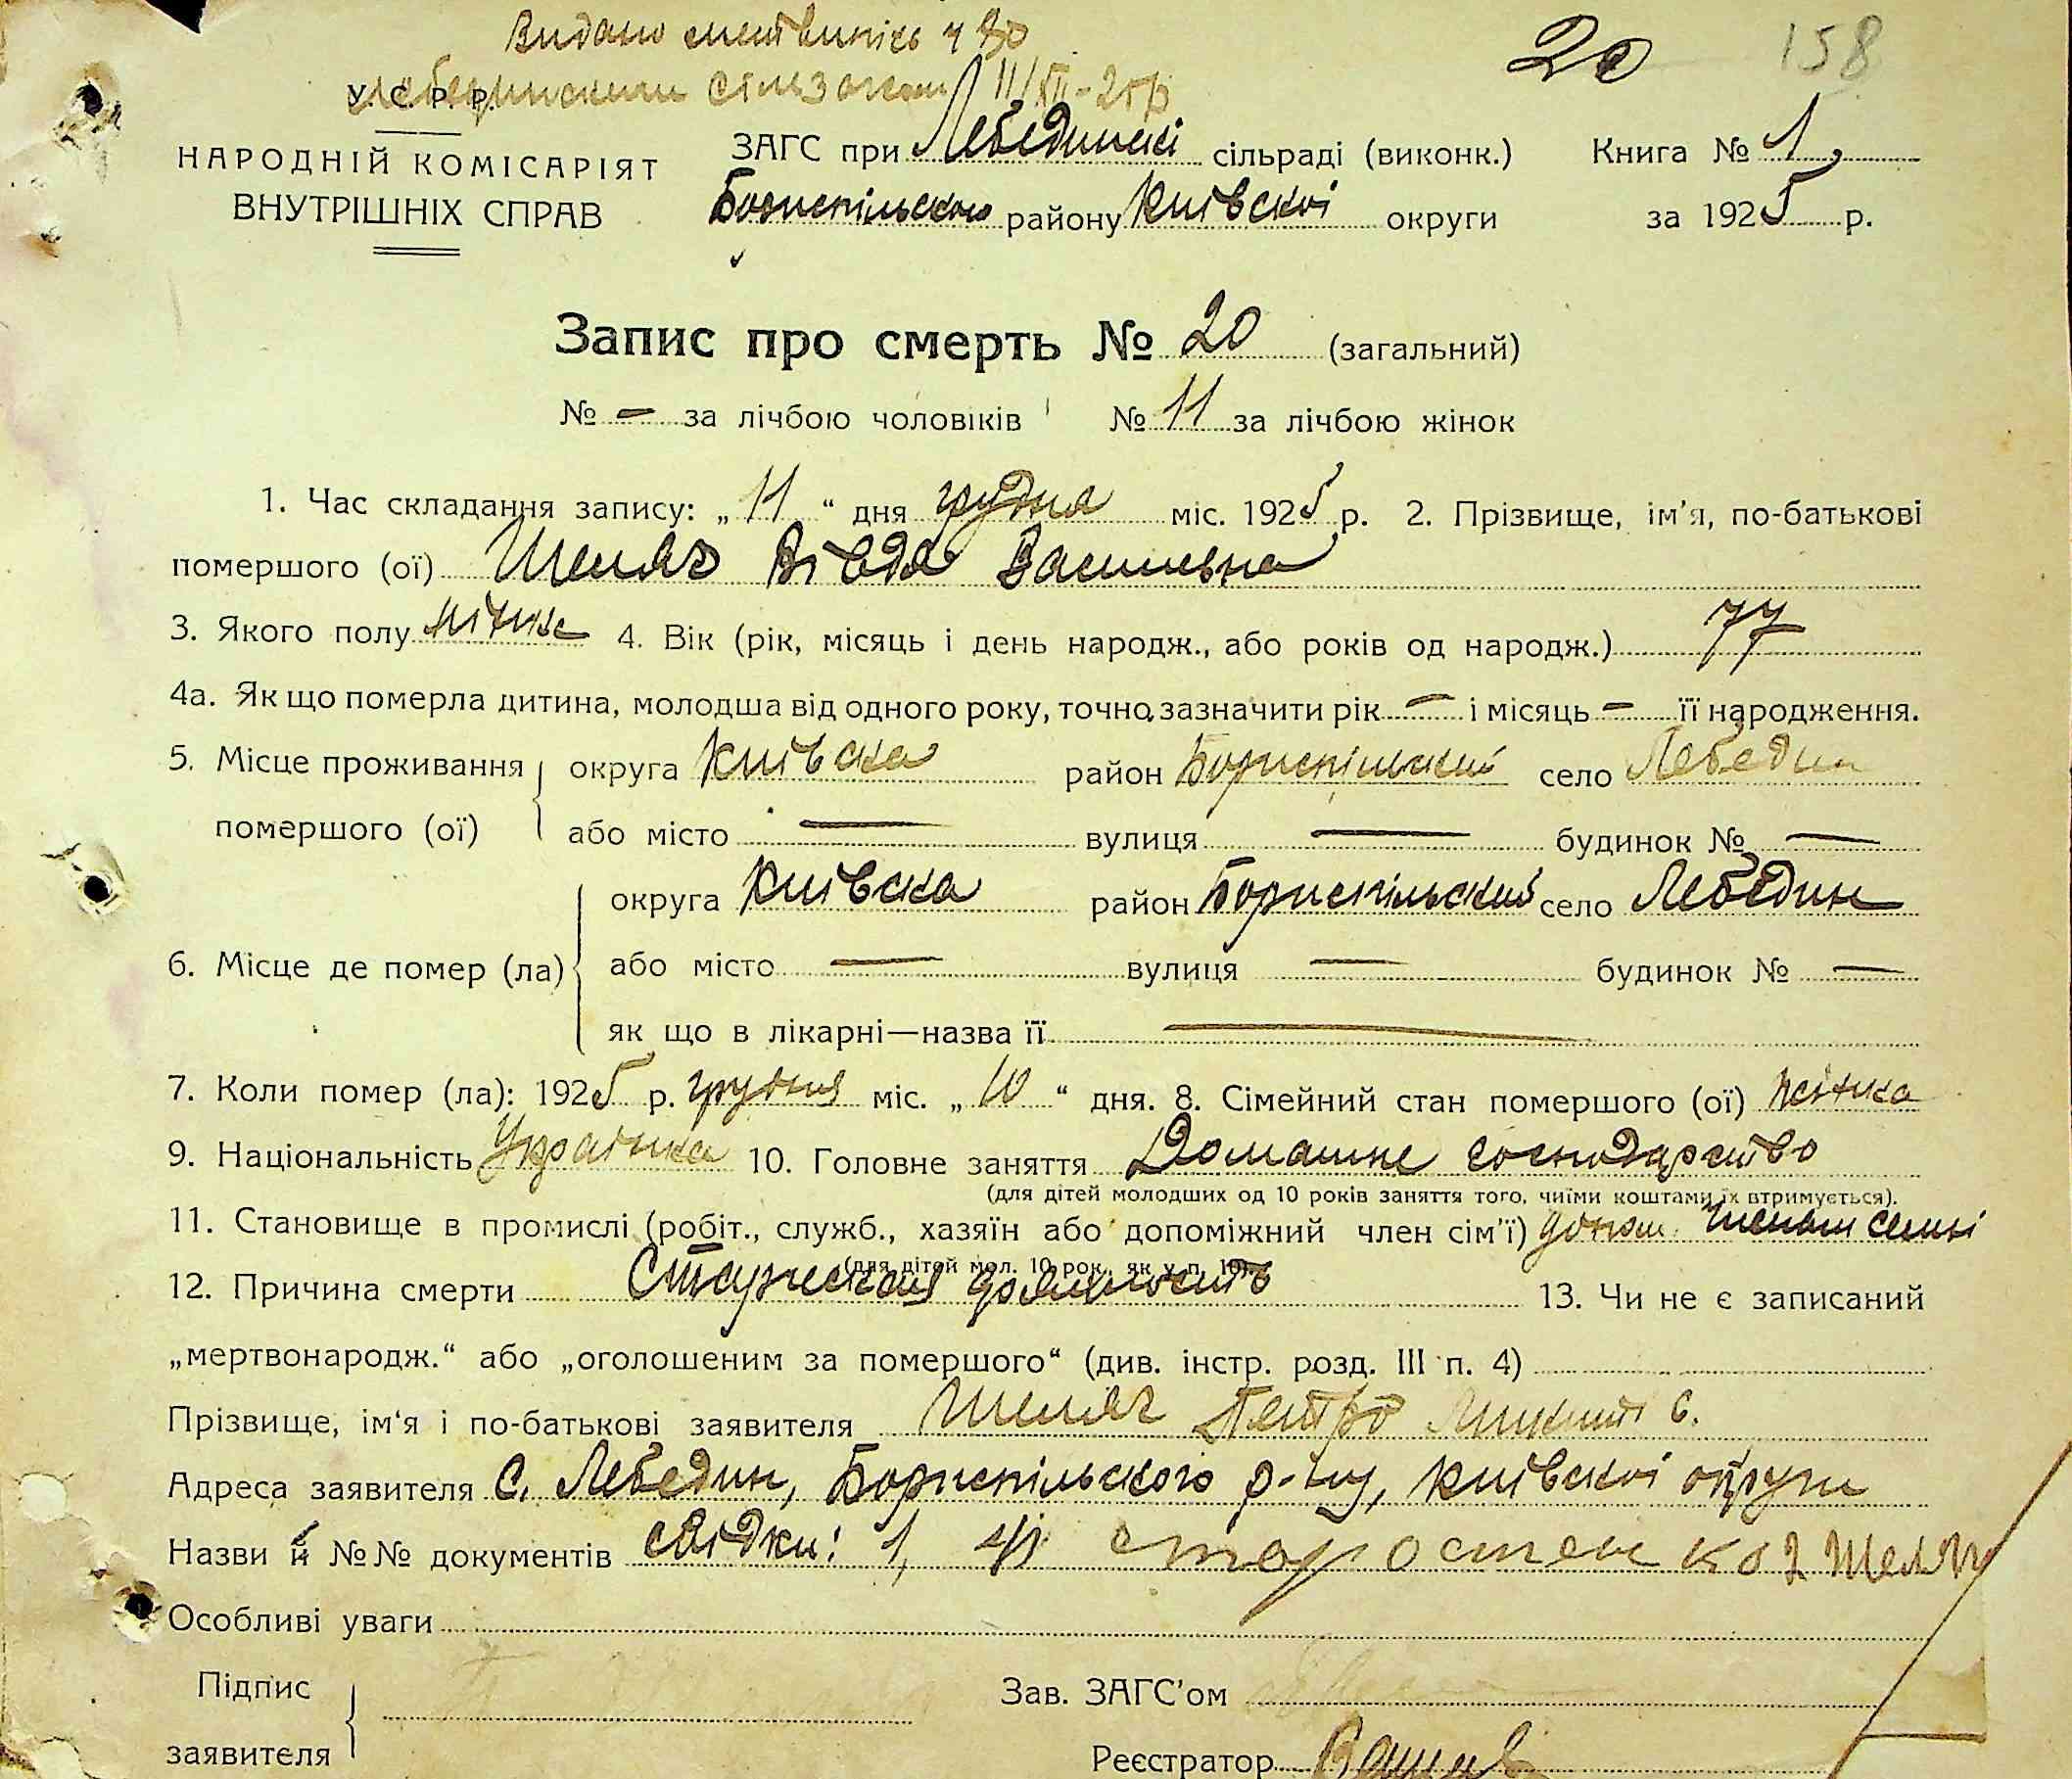 Видано 20 158
У.С.Р.Р. 11/XII-25р
НАРОДНІЙ КОМІСАРІЯТ
ВНУТРІШНІХ СПРАВ
ЗАГС при Лебединскі сільраді (виконк.) Книга № 1
Бориспільского району Київскоі округи за 1925 р.
Запис про смерть № 20 (загальний)
№ — за лічбою чоловіків № 11 за лічбою жінок
1. Час складання запису: „11“ дня грудня міс. 1925 р. 2. Прізвище, ім'я, по-батькові
помершого (ої) Шеляг Вівдя Василевна
3. Якого полу 4. Вік (рік, місяць і день народж., або років од народж.) 77
4а. Як що померла дитина, молодша від одного року, точно зазначити рік — і місяць — її народження.
5. Місце проживання округа Київска район Бориспільский село Лебедин
помершого (ої) або місто — вулиця — будинок № —
округа Київска район Бориспільский село Лебедин
6. Місце де помер (ла) або місто — вулиця — будинок № —
як що в лікарні—назва її —
7. Коли помер (ла): 1925 р. грудня міс. „10“ дня. 8. Сімейний стан помершого (ої) жінка
9. Національність Українка 10. Головне заняття Домашнє господарство
(для дітей молодших од 10 років заняття того, чиїми коштами їх втримується).
11. Становище в промислі (робіт., служб., хазяїн або допоміжний член сім'ї) допом.
(для дітей мол. 10 рок., як у п. 10).
12. Причина смерти Старческая 13. Чи не є записаний
„мертвонародж.“ або „оголошеним за помершого“ (див. інстр. розд. III п. 4)
Прізвище, ім'я і по-батькові заявителя Шеляг Петро
Адреса заявителя С. Лебедин, Бориспільского р-ну, Київскоі округи
Назви й №№ документів свідки: 1,
Особливі уваги
Підпис
заявителя
Зав. ЗАГС'ом
Реєстратор